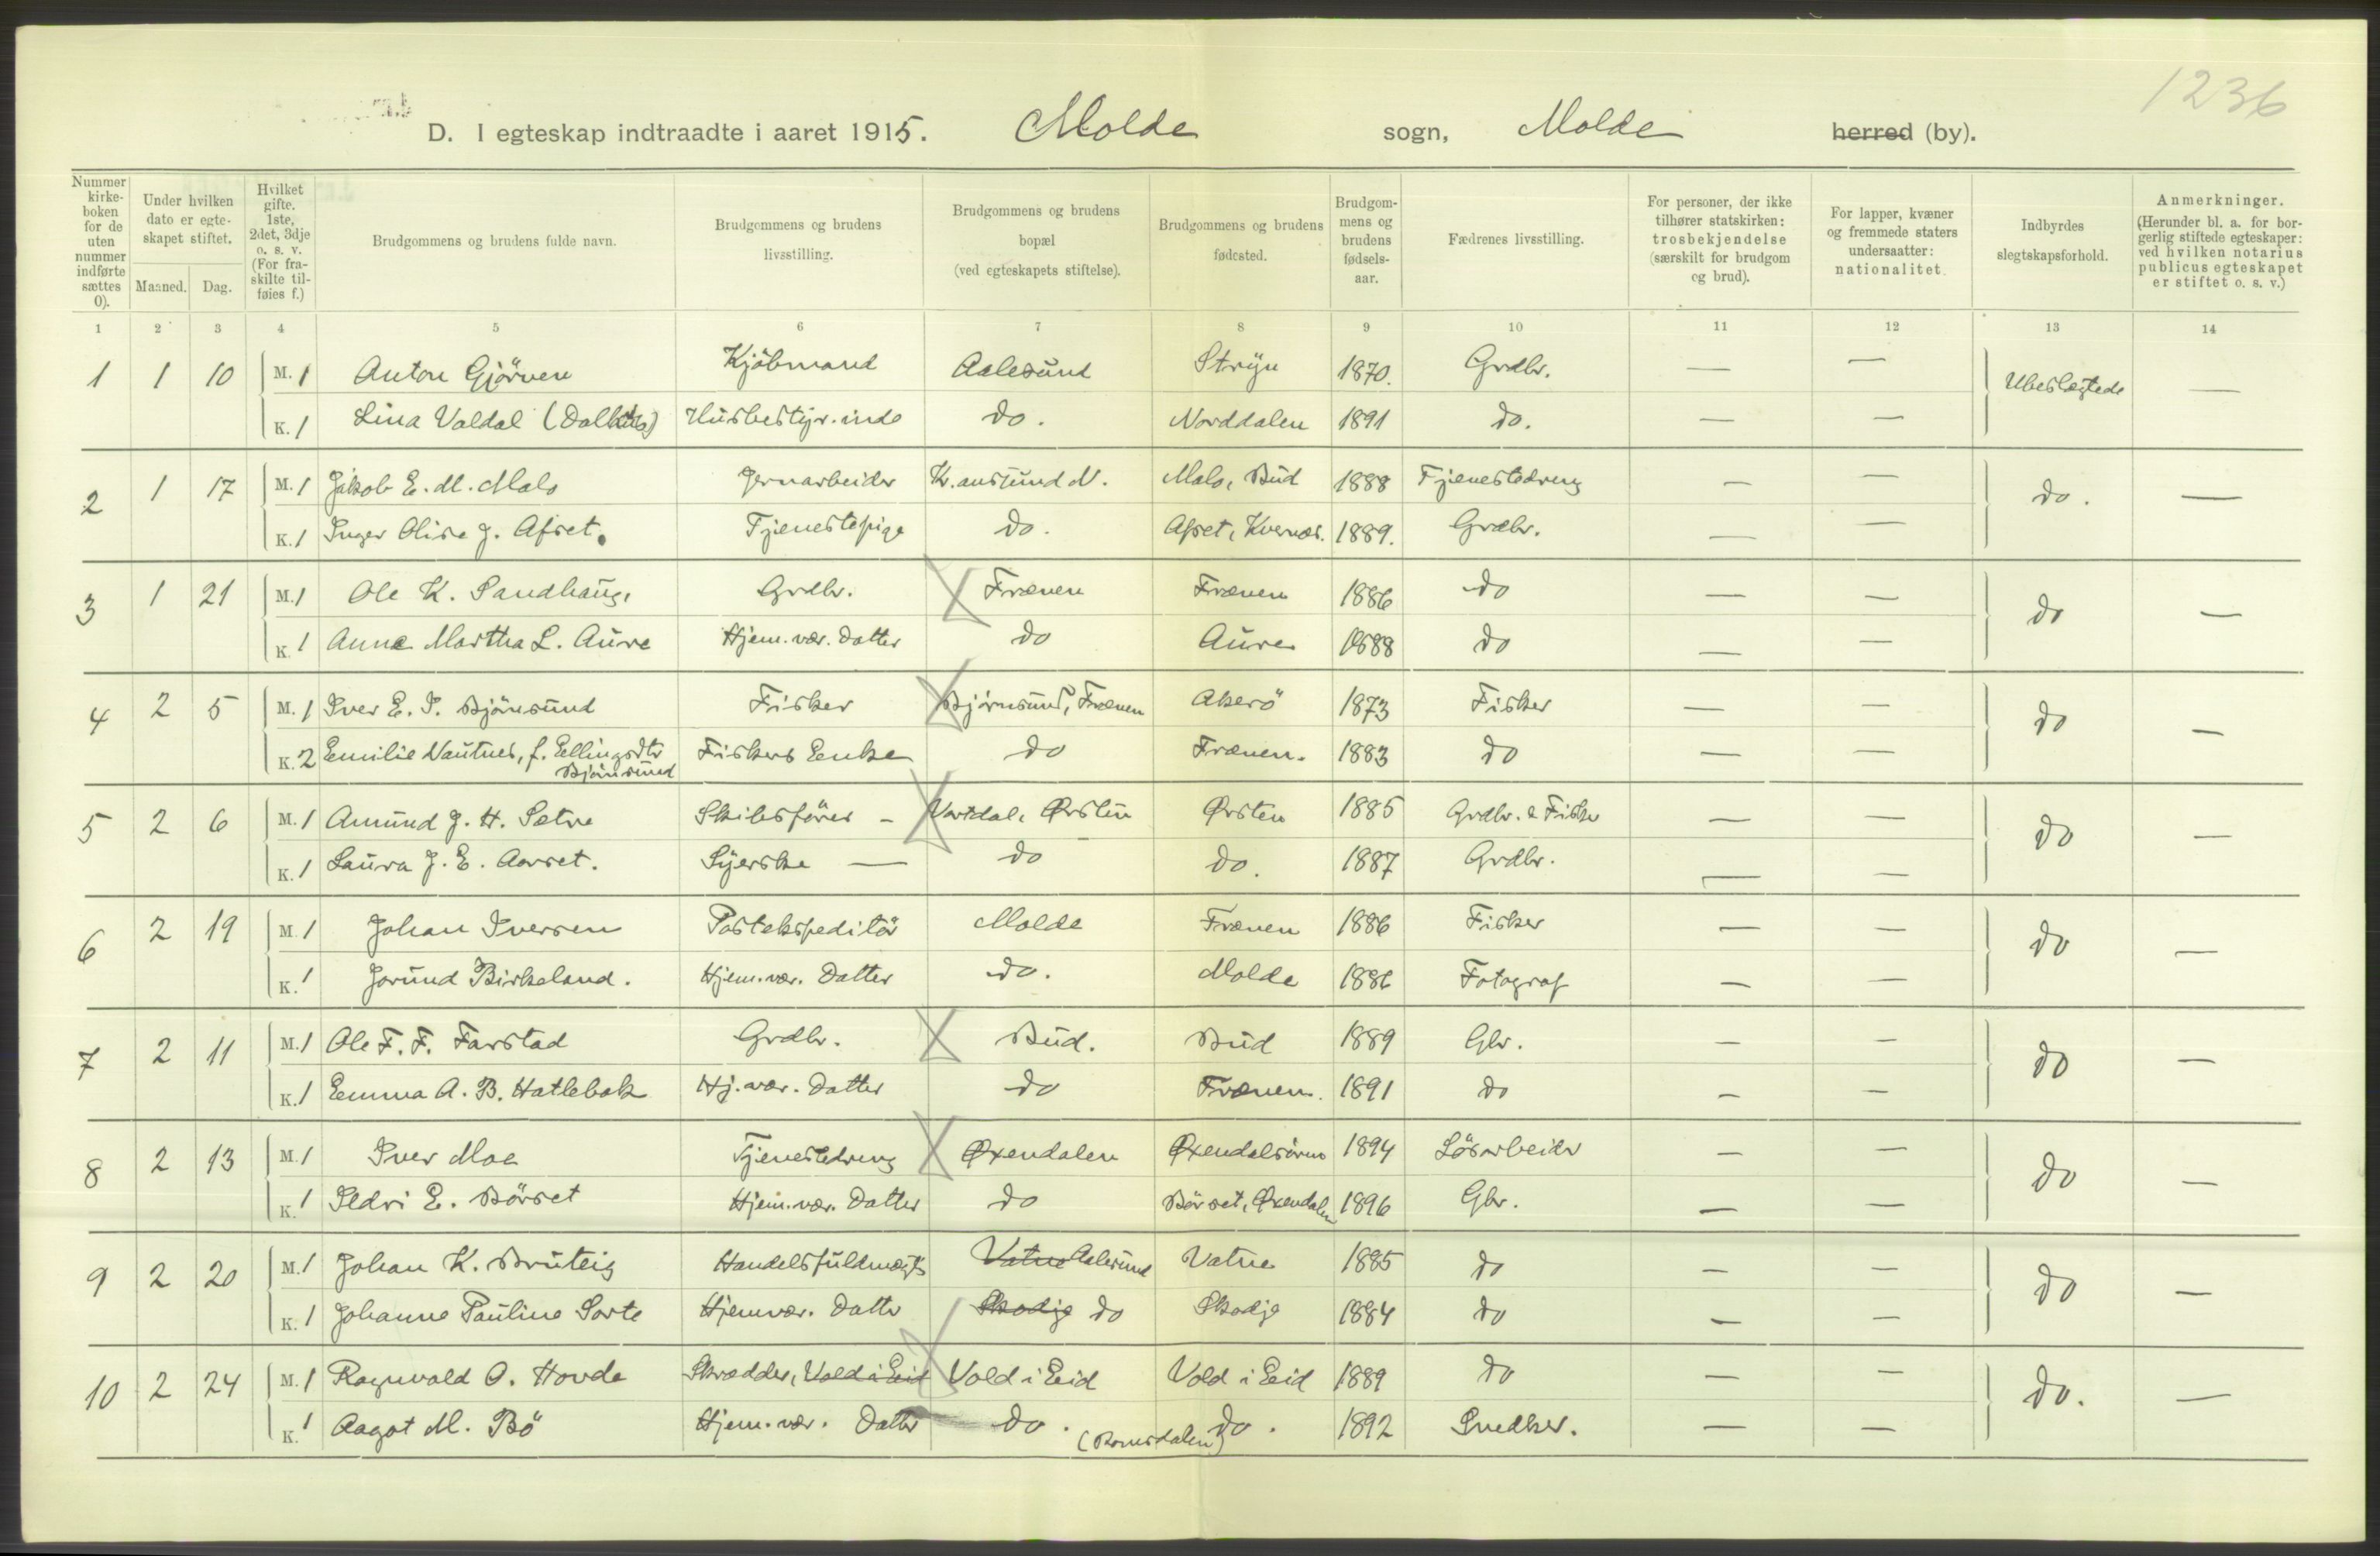 1236
D. I egteskap indtraadte i aaret 1915. Molde sogn, Molde herred (by).
Nummer kirke-boken for de uten nummer indførte sættes 0).
Under hvilken dato er egte-skapet stiftet.
Maaned. Dag.
Hvilket gifte. 1ste, 2det, 3dje o. s. v. (For fra-skilte til-føies f.)
Brudgommens og brudens fulde navn.
Brudgommens og brudens livsstilling.
Brudgommens og brudens bopæl (ved egteskapets stiftelse).
Brudgommens og brudens fødested.
Brudgom-mens og brudens fødsels-aar.
Fædrenes livsstilling.
For personer, der ikke tilhører statskirken: trosbekjendelse (særskilt for brudgom og brud).
For lapper, kvæner og fremmede staters undersaatter: nationalitet.
Indbyrdes slegtskapsforhold.
Anmerkninger. (Herunder bl. a. for bor-gerlig stiftede egteskaper: ved hvilken notarius publicus egteskapet er stiftet o. s. v.)
1 2 3 4 5 6 7 8 9 10 11 12 13 14
1 1 10 M. 1 Anton Gjörven Kjöbmand Aalesund Stryn 1870. Grdbr. — — Ubeslegtede —
K. 1 Lina Valdal Husbestyr.inde do. Norddalen 1891 do. — —
2 1 17 M. 1 Jakob E. M. Malo Jernarbeider Kr.ansund N. Malo, Bud 1888 Tjenestedreng — — do. —
K. 1 Inger Olise J. Afset. Tjenestepige do. Afset, Kvernes. 1889. Grdbr. — —
3 1 21 M. 1 Ole K. Sandhaug, Grdbr. Frænen Frænen 1886 do — — do —
K. 1 Anne Martha L. Aure Hjem.vær. Datter do Aure 1888 do — —
4 2 5 M. 1 Iver E. P. Björnsund Fisker Björnsund, Frænen Akerö 1873 Fisker — — do —
K. 2 Emilie Nautnes, f. Ellingsdtr Björnsund Fiskers Enke do Frænen. 1883 do — —
5 2 6 M. 1 Amund J. H. Sætre Skibsförer — Vartdal, Ørsten Ørsten 1885 Grdbr. & Fisker — — do —
K. 1 Laura J. E. Aarset. Syerske — do do. 1887 Grdbr. — —
6 2 19 M. 1 Johan Iversen Postekspeditör Molde Frænen 1886 Fisker — — do —
K. 1 Jorund Birkeland. Hjem.vær. Datter do. Molde 1886 Fotograf — —
7 2 11 M. 1 Ole F. F. Farstad Grdbr. Bud. Bud 1889 Gbr. — — do —
K. 1 Emma A. B. Hatlebak Hj.vær. Datter do Frænen. 1891 do — —
8 2 13 M. 1 Iver Moe Tjenestedreng Øxendalen Øxendalsören 1894 Lösarbeider — — do —
K. 1 Sedri E. Börset Hjem.vær. Datter do Börset, Øxendalen 1896 Gbr. — —
9 2 20 M. 1 Johan K. Bruteig Handelsfuldmægt. Vatne Aalesund Vatne 1885 do — — do —
K. 1 Johanne Pauline Sorte Hjemvær. Datter Skodje do Skodje 1884 do — —
10 2 24 M. 1 Ragnvald O. Hovde Skrædder, Vold i Eid Vold i Eid Vold i Eid 1889 do — — do. —
K. 1 Aagot M. Bö Hjem.vær. Datter do. (Romsdalen) do. 1892 Snedker. — —